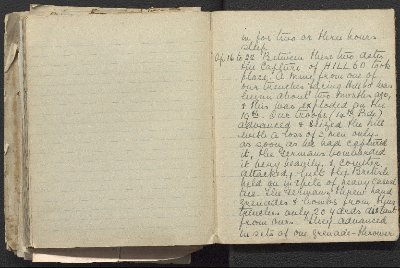 in for two or three hours
sleep.
Ap. 16 to 22 Between these two dates
the capture of HILL 60 took
place. A mine from one of
our trenches being had been
begun about two months ago,
& this was exploded on the
our troops
advanced & seized the hill
with a loss of 5 men only.
as soon as we had captured
it, the Germans bombarded
it very heavily, & counter
attacked, but the British
held on in spite of heavy casual
ties. The Germans threw hand
grenades & bombs from their
trenches only 20 yards distant
from ours. They advanced
in sets of one grenade-thrower